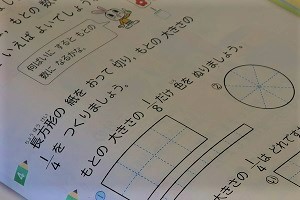 もとの 数
いえば よいでしょう。
何ばいに すると もとの
数に なるかな。
長方形の 紙を おって 切り、もとの 大きさの
1/4を つくりましょう。
4
もとの 大きさの 1/8だけ 色を ぬりましょう。
①
②
大きさの 1/4は どれです